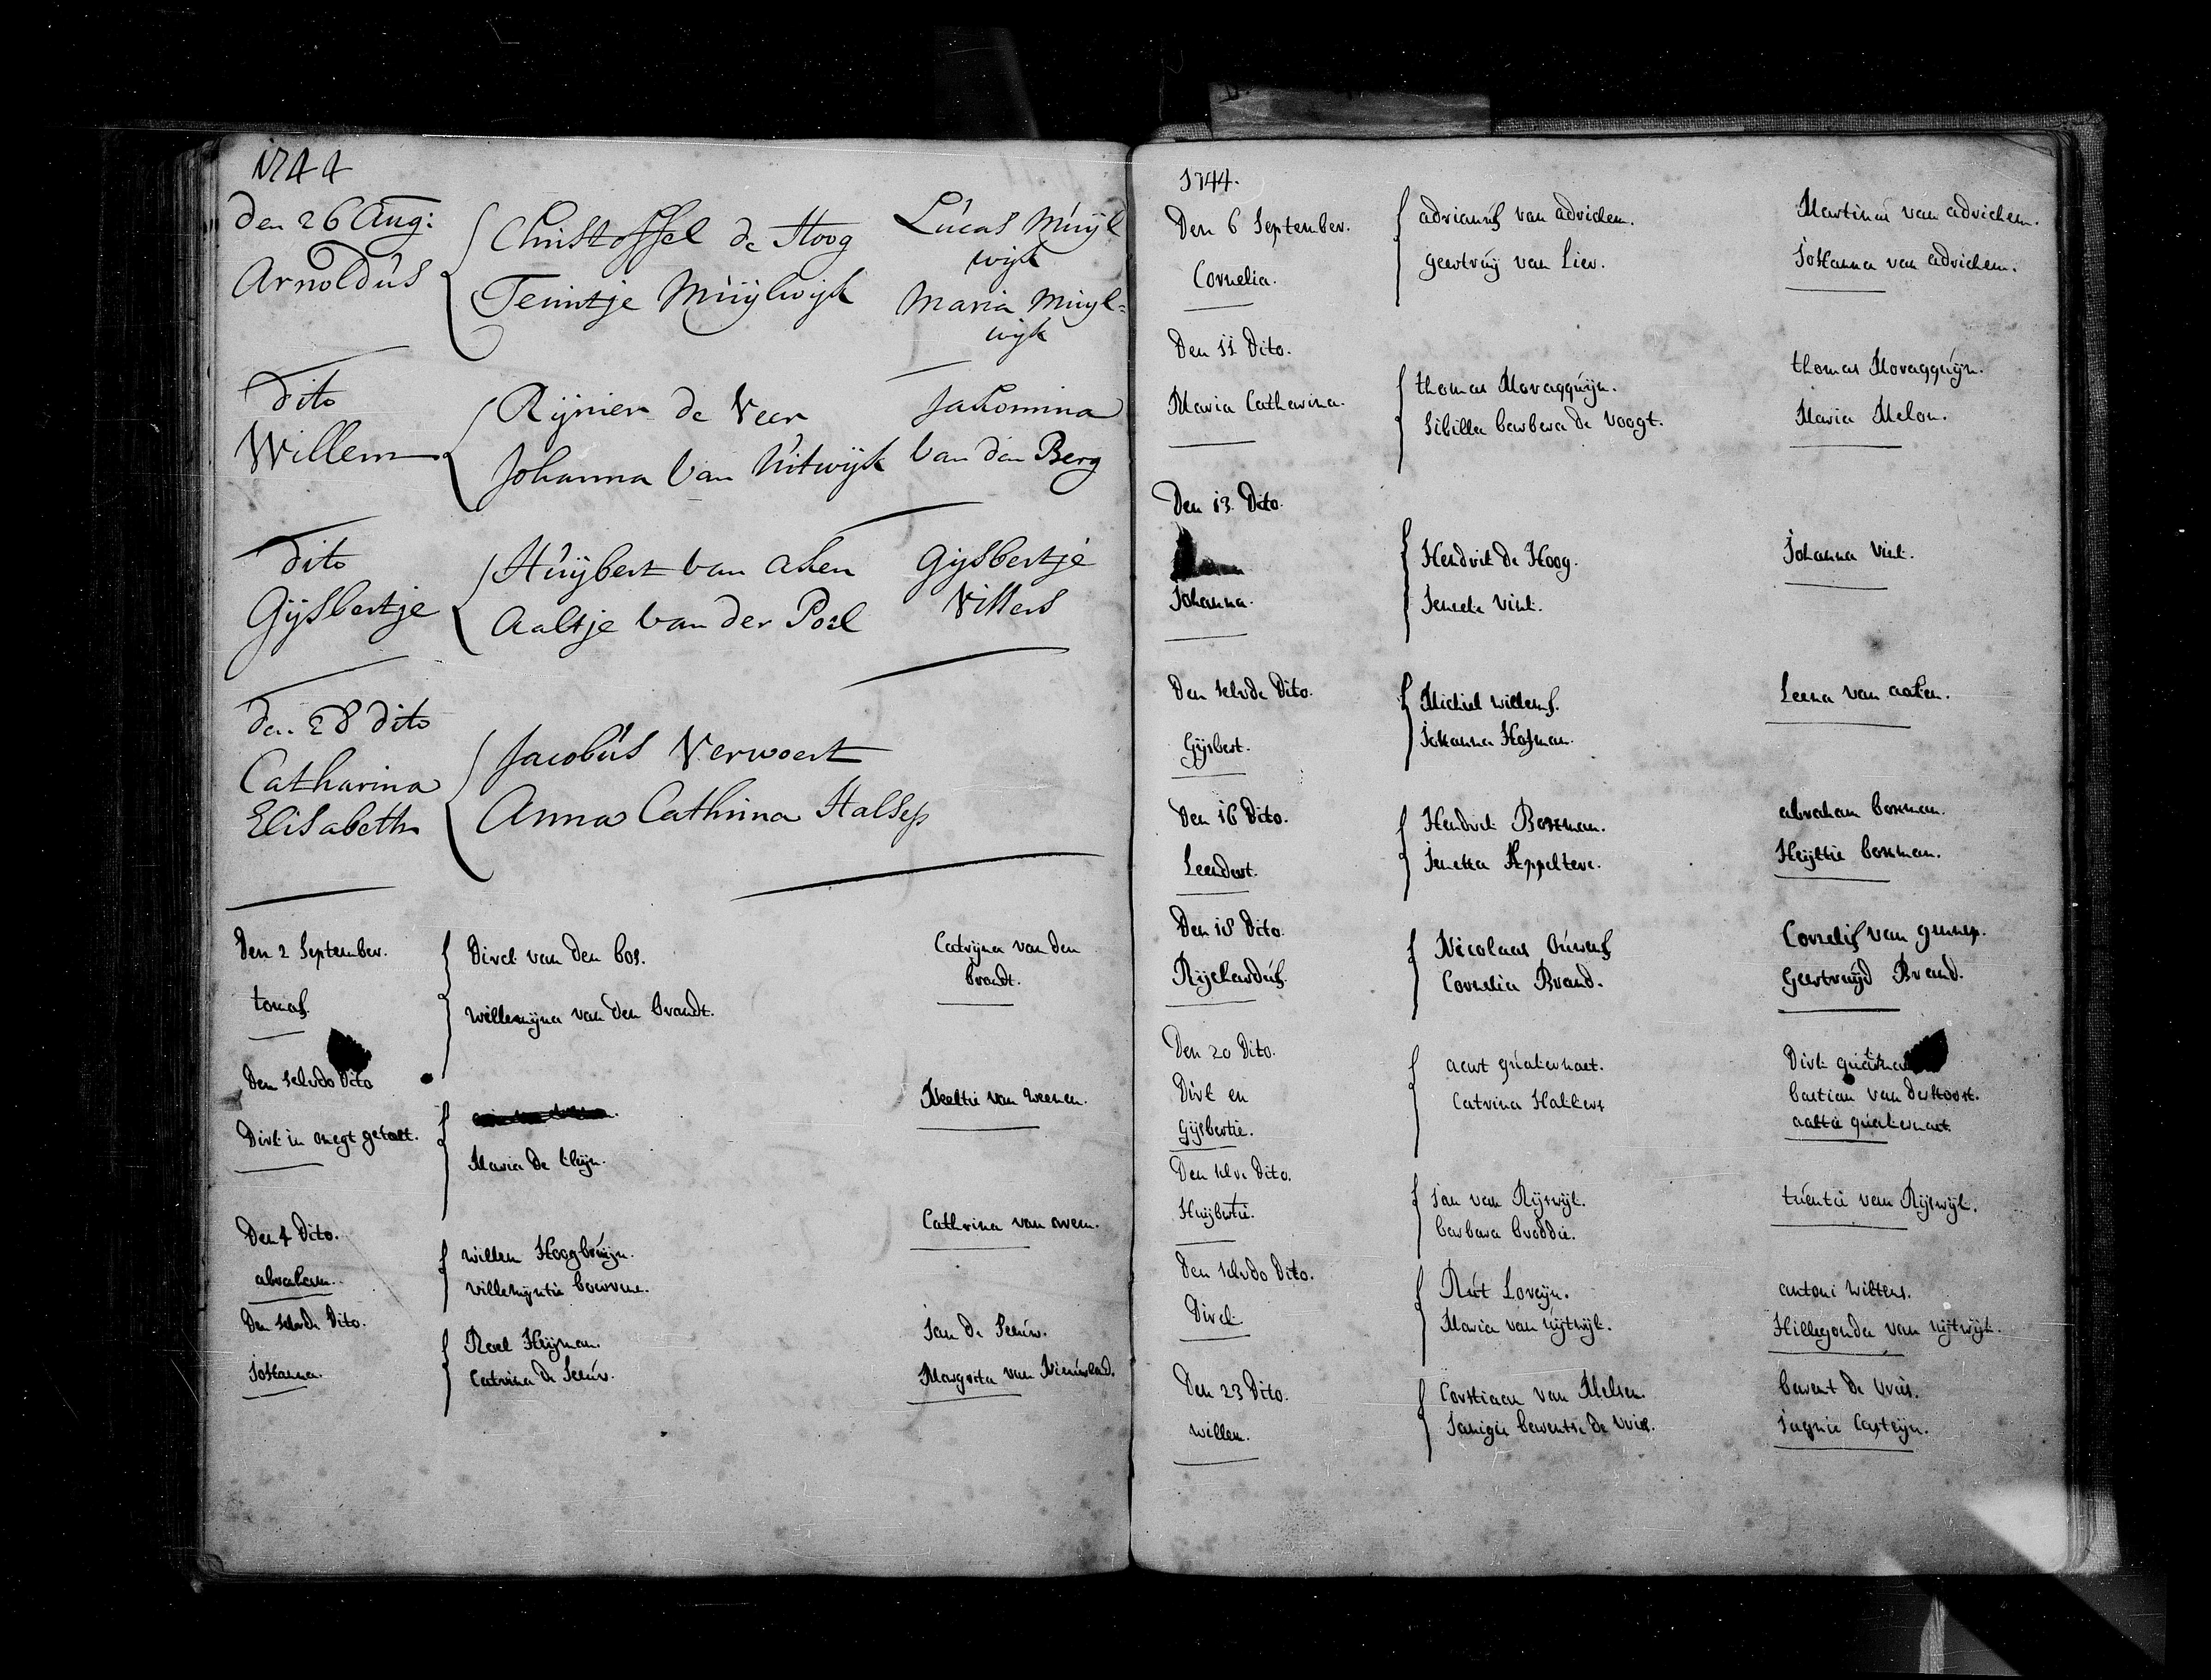 1744
den 26 Aug:
Arnoldús
Christoffel de Hoog
Teuntje Múijlwijk
Lúcas Múijl
wijk
Maria Múijl=
wijk
dito
Willem
Rijnier de Veer
Johanna Van Uitwijk
Jakomina
Van den Berg
dito
Gijsbertje
Húijbert van aken
Aaltje van der Poel
Gijsbertje
Villers
den 28 dito
Catharina
Elisabeth
Jacobús Verwoert
Anna Cathrina
Den 2 September.
tomas
Dirck van den bos.
willemijna van den brandt.
Catrijna van den
brandt.
Den selvdo Dito
Dirk in onegt geteelt.
Maria de Cleijn.
Neeltie van weenen.
Den 4 Dito.
abraham.
willem Hoogbrúijn.
villemijntie
Cathrina van
Den selvde Dito.
Johanna.
Roel Heijman.
Catrina de Leeúw.
Jan de Leeúw.
Margreta van Nieúwland.
1744.
Den 6 September.
Cornelia.
adrianús van adrichem.
geertrúij van Lier.
Martinús van adrichem.
Johanna van adrichem.
Den 11 Dito.
Maria Catharina.
thomas Moraqúijn.
Sibilla barbera de Voogt.
thomas Moraqúijn.
Maria Melon.
Den 13. Dito.
Johanna.
Hendrik de Hoog.
Vink.
Johanna Vink.
Den selvde Dito.
Gijsbert.
Michiel willems.
Johanna Hofman.
Leena van aaken.
Den 16 Dito.
Leendert.
Hendrik Bosman.
Janetta Appeltere.
abraham bosman.
Heijltie bosman.
Den 18 Dito.
Rijckardús.
Nicolaas
Cornelia Brand.
Cornelis van gennep.
Geertruijd Brand.
Den 20 Dito.
Dirk en
Gijsbertie.
aert qúakernaet.
Catrina Hakkers
Dirk
bastian van der Koost.
aaltie qúakernaet.
Den selve Dito.
Huijbertie.
Jan van Rijswijk.
barbara broddie.
túentie van Rijswijk.
Den selvdo Dito.
Dirck
Rút Loreijn.
Maria van úijtwijk.
antoni wilkens.
Hillegonda van úijtwijk.
Den 23 Dito.
willem.
Corstiaan van Melsen.
Janigie berentse de vries.
berent de Vries.
Jagnie Casteijn.